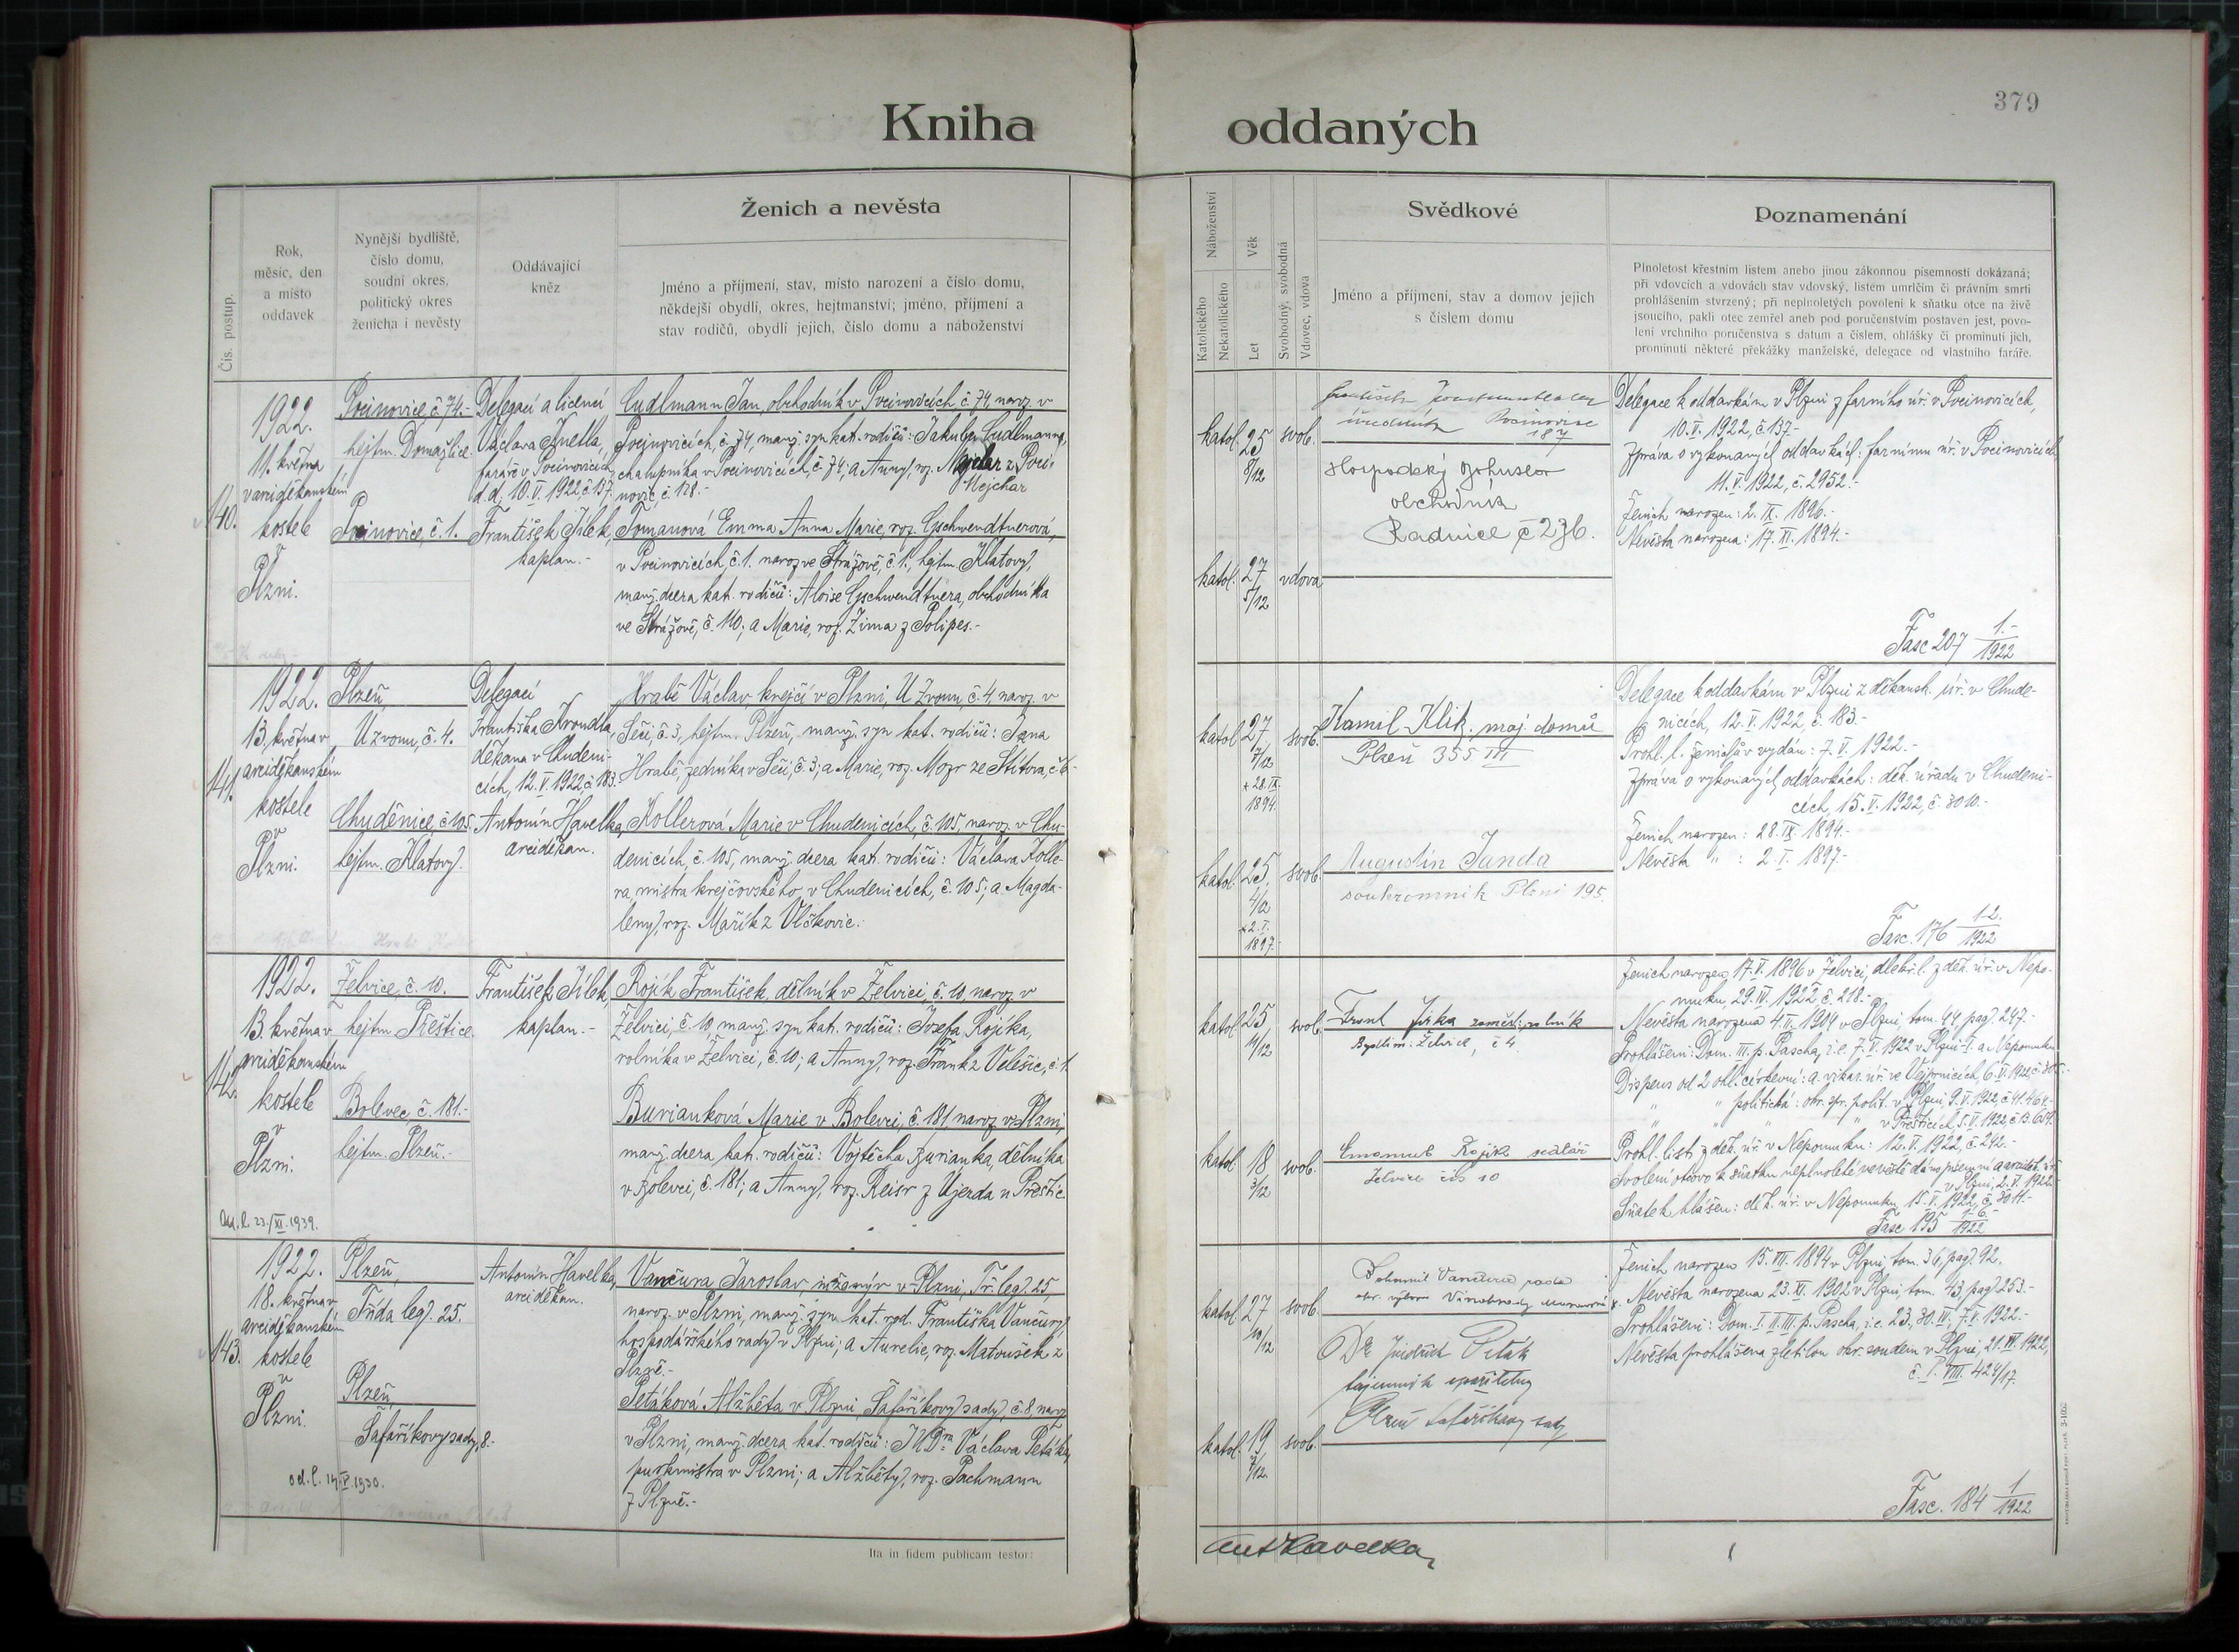 379
Kniha oddaných
Čís. postup.
Rok,
měsíc, den
a místo
oddavek
Nynější bydliště,
číslo domu,
soudní okres,
politický okres
ženicha i nevěsty
Oddávající
kněz
Ženich a nevěsta
Jméno a příjmení, stav, místo narození a číslo domu,
někdejší obydlí, okres, hejtmanství; jméno, příjmení a
stav rodičů, obydlí jejich, číslo domu a náboženství
Náboženství
Katolického
Nekatolického
Věk
Let
Svobodný, svobodná
Vdovec, vdova
Svědkové
Jméno a příjmení, stav a domov jejich
s číslem domu
Poznamenání
Plnoletost křestním listem anebo jinou zákonnou písemností dokázaná;
při vdovcích a vdovách stav vdovský, listem úmrlčím či právním smrti
prohlášením stvrzený; při neplnoletých povolení k sňatku otce na živě
jsoucího, pakli otec zemřel aneb pod poručenstvím postaven jest, povo-
lení vrchního poručenstva s datum a číslem, ohlášky či prominutí jich,
prominutí některé překážky manželské, delegace od vlastního faráře.
140.
1922.
11. května
v arciděkanském
kostele
v
Plzni.
Pocinovice, č. 74.-
hejtm. Domažlice.
Pocinovice, č. 1.
Delegací a licencí
Václava
faráře v Pocinovicích
d.d. 10.V.1922, č. 137.
František Jílek,
kaplan.-
Cudlmann Jan, obchodník v Pocinovicích č. 74, naroz. v
Pocinovicích, č. 74, manž. syn kat. rodičů: Jakuba Cudlmanna,
chalupníka v Pocinovicích, č. 74; a Anny, roz. Mejchar z Poci-
novic č. 128.-
Mejchar
Tomanová Emma Anna Marie, roz. Gschwendtnerová,
v Pocinovicích, č. 1. naroz. ve Strážově, č. 1., hejtm. Klatovy,
manž. dcera kat. rodičů: Aloise Gschwendtnera, obchodníka
ve Strážově, č. 110; a Marie, roz. Zima z Polipes.-
katol. 25 8/12 svob.
katol. 27 5/12 vdova
úředník Pocinovice
187
Hospodský Bohuslav
obchodník
Radnice č 236.
Delegace k oddavkám v Plzni z farního úř. v Pocinovicích,
10.V.1922, č. 137.-
Zpráva o vykonaných oddavkách: farnímu úř. v Pocinovicích
11.V.1922, č. 2952.-
Ženich narozen: 2. IX. 1896.-
Nevěsta narozena: 17. XI. 1894.-
Fasc 207 1.-/1922
141.
1922.
13. května v
arciděkanském
kostele
v
Plzni.
Plzeň,
U zvonu, č. 4.
Chudenice, č 105.
hejtm. Klatovy.
Delegací
Františka Kroudla,
děkana v Chudeni-
cích, 12.V.1922, č. 183.
Antonín Havelka,
arciděkan.
Hrabě Václav, krejčí v Plzni, U Zvonu, č. 4, naroz. v
Seči, č. 3, hejtm. Plzeň, manž. syn kat. rodičů: Jana
Hrabě, zedníka v Seči, č. 3; a Marie, roz. Mozr ze Štítova, č. 6-
Kollerová Marie v Chudenicích, č. 105, naroz. v Chu-
denicích, č. 105, manž. dcera kat. rodičů: Václava Kolle-
ra, mistra krejčovského, v Chudenicích, č. 105; a Magda-
leny, roz. Mařík z Vlčkovic.
katol. 27 7/12 svob.
* 28.IX.
1894.
katol. 25 4/12 svob.
* 2.I.
1897.-
Kamil Klik. maj. domů
Plzeň 355 III
Augustin Janda
soukromník Plzni 195.
Delegace k oddavkám v Plzni z děkansk. úř. v Chude-
nicích, 12.V.1922, č. 183.-
Prohl. l. ženichův vydán: 7. V. 1922.-
Zpráva o vykonaných oddavkách: děk. úřadu v Chudeni-
cích, 15.V.1922, č. 3010.-
Ženich narozen: 28. IX. 1894.-
Nevěsta " : 2. I. 1897.-
Fasc. 176 1-2./1922
142.
1922.
13. května v
arciděkanském
kostele
v
Plzni.
Od.l. 23./XI.1939.
Želvice, č. 10.
hejtm. Přeštice.
Bolevec, č. 181.-
hejtm. Plzeň.-
František Jílek,
kaplan.-
Rojík František, dělník v Želvici, č. 10, naroz. v
Želvici, č. 10, manž. syn kat. rodičů: Josefa Rojíka,
rolníka v Želvici, č. 10; a Anny, roz. Frank z Velešic, č. 1.
Burianková Marie v Bolevci, č. 181, naroz. v Plzni,
manž. dcera kat. rodičů: Vojtěcha Burianka, dělníka
v Bolevci, č. 181; a Anny, roz. Reisr z Újezda u Přeštic.
katol. 25 11/12 svob.
katol. 18 3/12 svob.
Jirka rolník
Bydlím: Želvice, č 4
Emanuel Rojík sedlář
Želvice čís 10
Ženich narozen 17.V.1896 v Želvici, dle křl. z děk. úř. v Nepo-
muku, 29.IV.1922 č. 218.-
Nevěsta narozena 4.II.1904 v Plzni, tom. 44, pag. 247.-
Prohlášeni: Dom. III. p. Pascha, i.e. 7.V.1922 v Plzni-I. a v Nepomuku
Dispens od 2 ohl. církevní: a. vikar. úř. ve Vejprnicích, 6.V.1922, č.
" " politická: okr. spr. polit. v Plzni, 9.V.1922 č 41.464.-
" " " v Přešticích, 5.V.1922, č.
Prohl. listi z děk. úř. v Nepomuku: 12.V.1922, č. 242.-
Svolení otcovo k sňatku neplnoleté nevěstě dáno písemně a arciděk. úř.
v Plzni, 2.V.1922.-
Sňatek hlášen: děk. úř. v Nepomuku 15.V.1922, č. 3011.-
Fasc 195 1-6-/1922
143.
1922.
18. května v
arciděkanském
kostele
v
Plzni.
od.l. 14.V.1930.
Plzeň,
Třída leg. 25.
Plzeň,
Šafaříkovy sady, 8.-
Antonín Havelka,
arciděkan.
Vančura Jaroslav, inženýr v Plzni, Tř. leg. 25,
naroz. v Plzni, manž. syn kat. rod. Františka Vančury,
hospodářského rady v Plzni; a Aurelie, roz. Matoušek z
Plzně.-
Petáková Alžběta v Plzni, Šafaříkovy sady, č. 8, naroz.
v Plzni, manž. dcera kat. rodičů: JUDra Václava Petáka,
purkmistra v Plzni; a Alžběty, roz. Pachmann
z Plzně.-
katol. 27 10/12 svob.
katol. 19 7/12 svob.
Bohumil Vančura, rada
Dr Jindřich Peták
tajemník spořitelny
Plzeň Šafaříkovy sady
Ženich narozen 15.VII.1894 v Plzni, tom. 36, pag. 92.
Nevěsta narozena 23.XI.1902 v Plzni, tom. 43, pag. 253.-
Prohlášeni: Dom. I. II. III. p. Pascha, i.e. 23., 30. IV., 7.V.1922.-
Nevěsta prohlášena zletilou okr. soudem v Plzni, 21.III.1922,
č. P. VIII. 424/17.
Fasc. 184 1/1922
Ita in fidem publicam testor:
Ant Havelka,